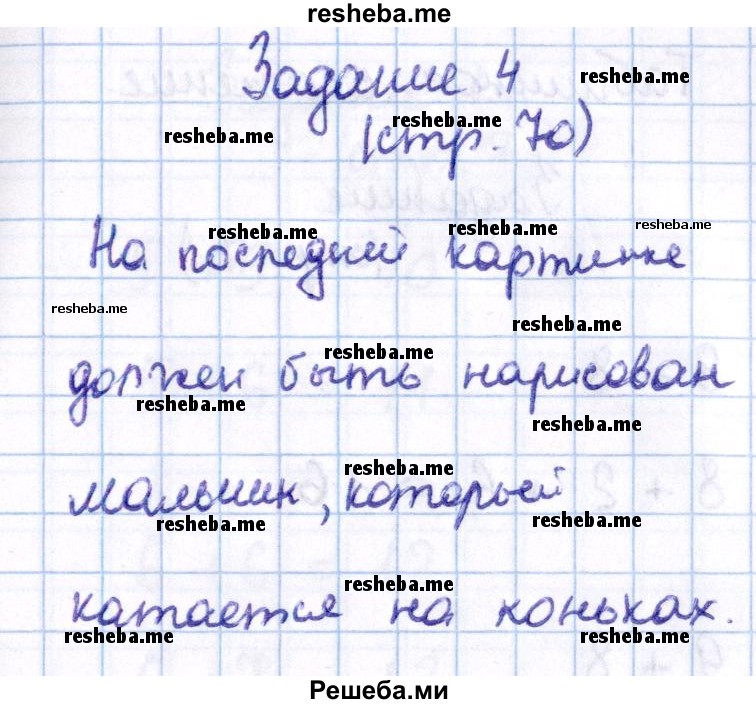 resheba.me
Задание 4
resheba.me
resheba.me
resheba.me
(стр. 70)
resheba.me
resheba.me
resheba.me
На последней картинке
resheba.me
resheba.me
resheba.me
должен быть нарисован
resheba.me
resheba.me
resheba.me
мальчик, который
resheba.me
resheba.me
resheba.me
катается на коньках.
resheba.me
resheba.me
Решеба.ми